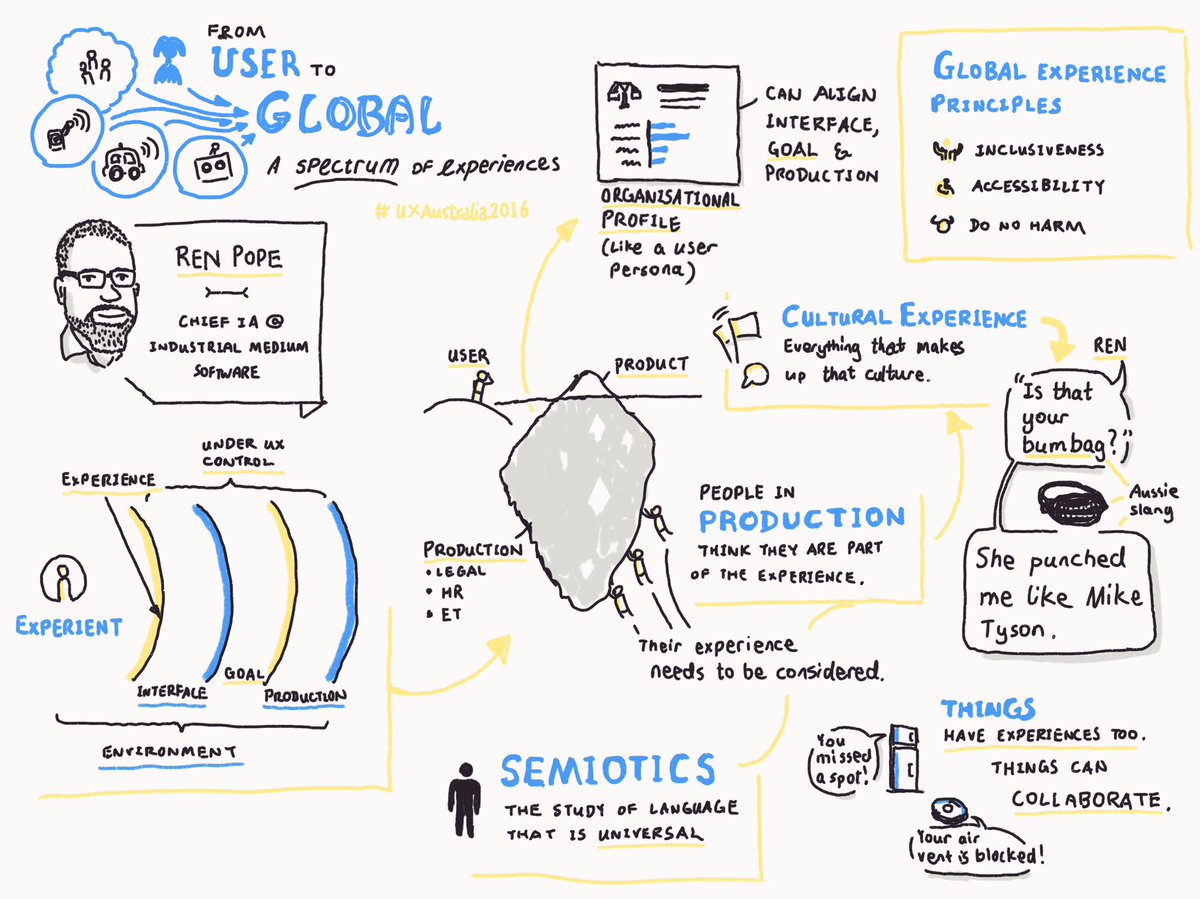 FROM
USER TO
GLOBAL
A SPECTRUM OF EXPERIENCES
#UXAustralia2016
REN POPE
CHIEF IA @
INDUSTRIAL MEDIUM
SOFTWARE
ORGANISATIONAL
PROFILE
(Like a user
persona)
CAN ALIGN
INTERFACE,
GOAL &
PRODUCTION
GLOBAL EXPERIENCE
PRINCIPLES
INCLUSIVENESS
ACCESSIBILITY
DO NO HARM
UNDER UX
CONTROL
EXPERIENCE
EXPERIENT
INTERFACE
GOAL
PRODUCTION
ENVIRONMENT
USER
PRODUCT
PRODUCTION
• LEGAL
• HR
• ET
PEOPLE IN
PRODUCTION
THINK THEY ARE PART
OF THE EXPERIENCE.
Their experience
needs to be considered.
CULTURAL EXPERIENCE
Everything that makes
up that culture.
REN
"Is that
your
bumbag?"
Aussie
slang
She punched
me like Mike
Tyson.
SEMIOTICS
THE STUDY OF LANGUAGE
THAT IS UNIVERSAL
THINGS
HAVE EXPERIENCES TOO.
THINGS CAN
COLLABORATE.
You
missed
a spot!
Your air
vent is blocked!